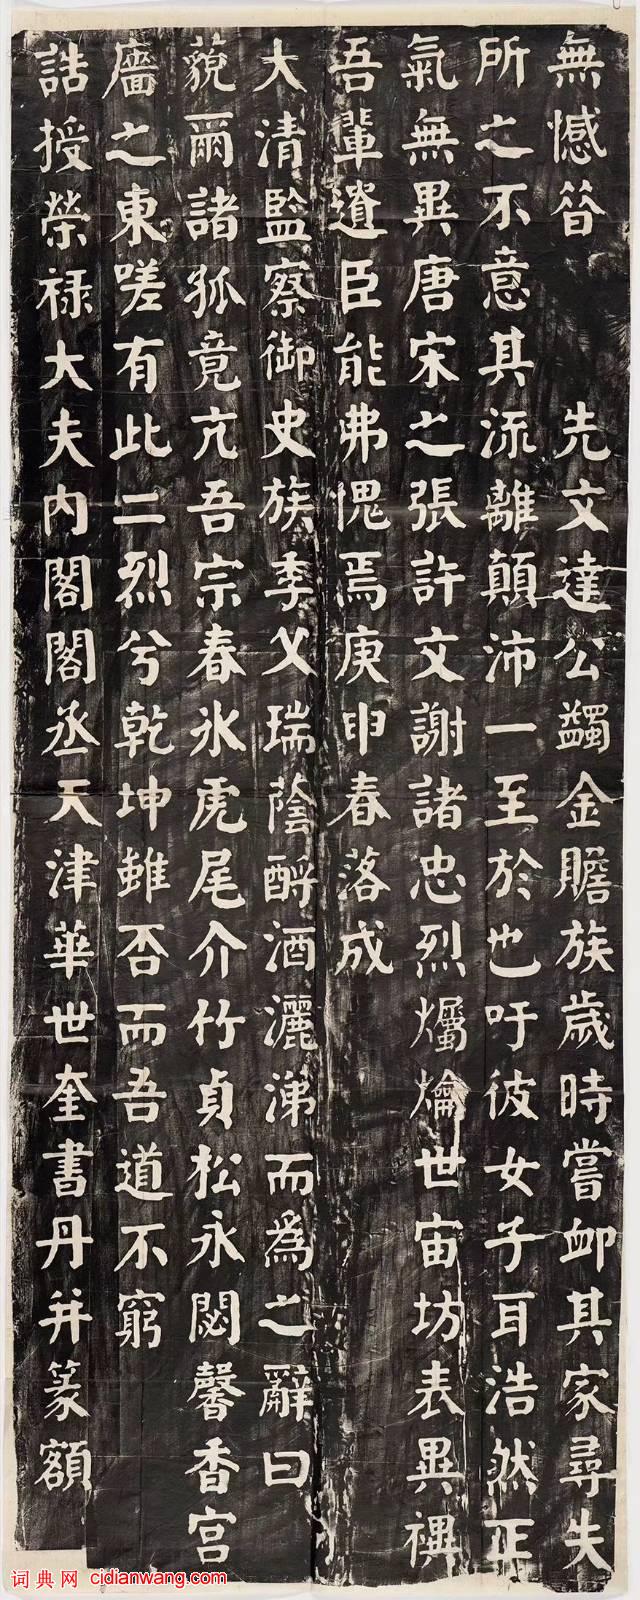 無憾㫺 先文達公蠲金贍族歲時嘗卹其家尋失
所之不意其流離顛沛一至於也吁彼女子耳浩然正
氣無異唐宋之張許文謝諸忠烈爥爚世宙坊表異禩
吾輩遺臣能弗愧焉庚申春落成
大清監察御史族季父瑞蔭酹酒灑涕而為之辭曰
藐爾諸孤竟亢吾宗春氷虎尾介竹貞松永閟馨香宮
廧之東嗟有此二烈兮乾坤雖否而吾道不窮
誥授榮祿大夫內閣閣丞天津華世奎書丹并篆額
词典网 cidianwang.com